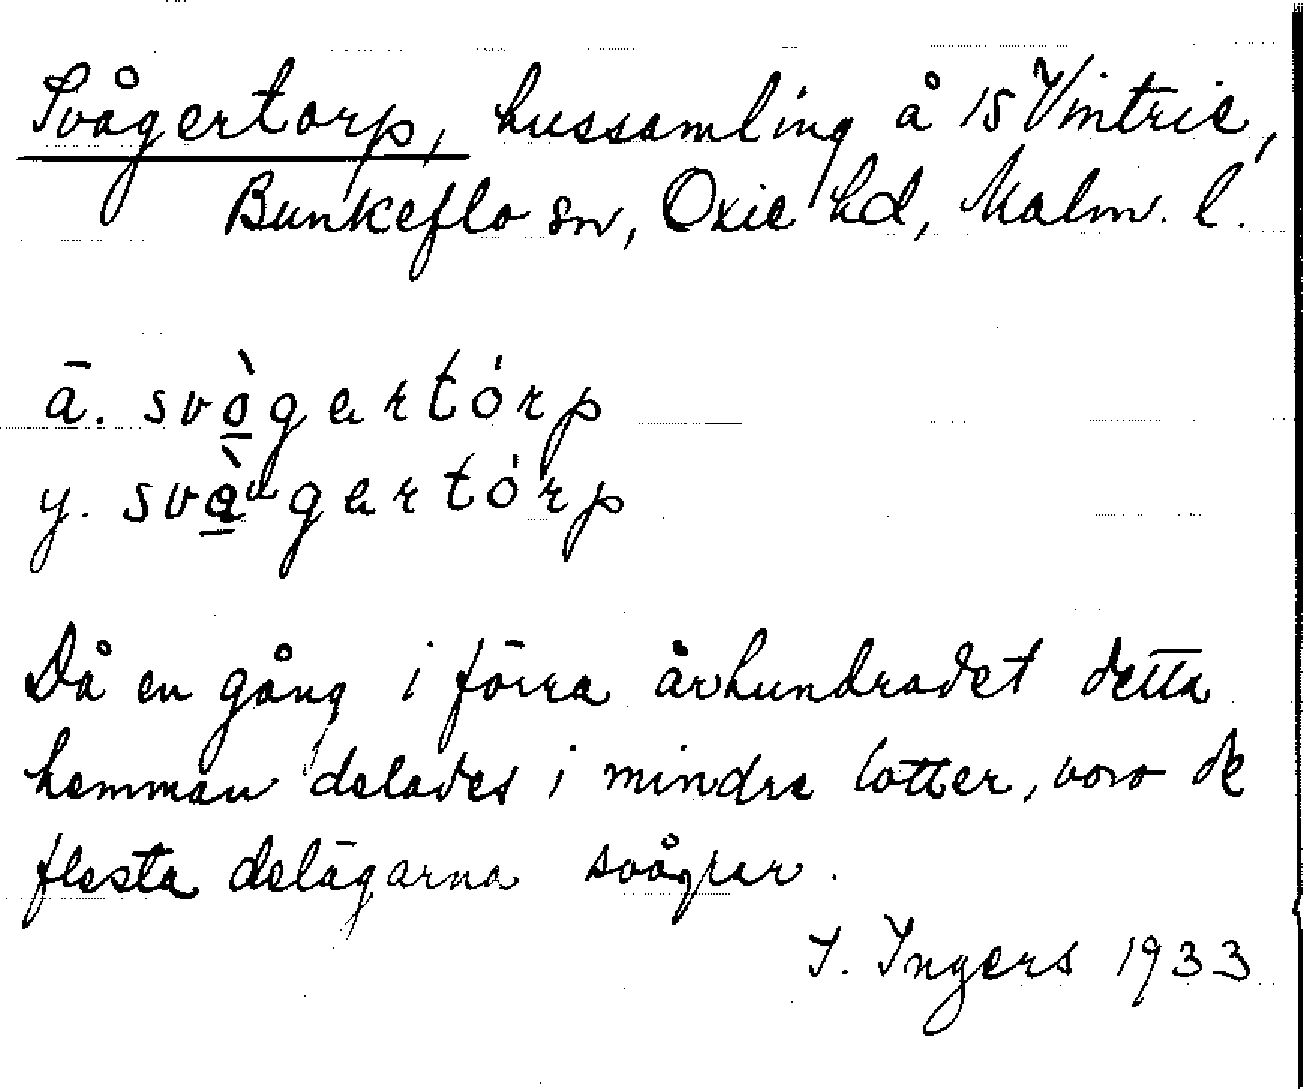 Svågertorp, hussamling å 15 Vintrie,
Bunkeflo sn, Oxie hd, Malm. l.
ä. svò̲gartórp
y. svà̲ᵘgartórp
Då en gång i förra århundradet detta
hemman delades i mindre lotter, voro de
flesta delägarna svågrar.
I. Ingers 1933